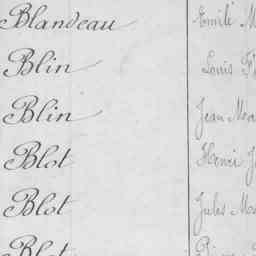 Blandeau Emile
Blin Louis
Blin Jean
Blot Henri
Blot Jules
Blot